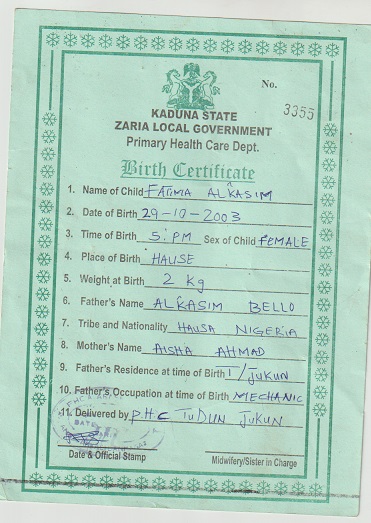 No. 3355
KADUNA STATE
ZARIA LOCAL GOVERNMENT
Primary Health Care Dept.
Birth Certificate
1. Name of Child FATIMA ALKASIM
2. Date of Birth 29-10-2003
3. Time of Birth 5:PM Sex of Child FEMALE
4. Place of Birth HAUSE
5. Weight at Birth 2 Kg
6. Father's Name ALKASIM BELLO
7. Tribe and Nationality HAUSA NIGERIA
8. Mother's Name AISHA AHMAD
9. Father's Residence at time of Birth T/JUKUN
10. Father's Occupation at time of Birth MECHANIC
11. Delivered by PHC TUDUN JUKUN
Date & Official Stamp Midwifery/Sister in Charge